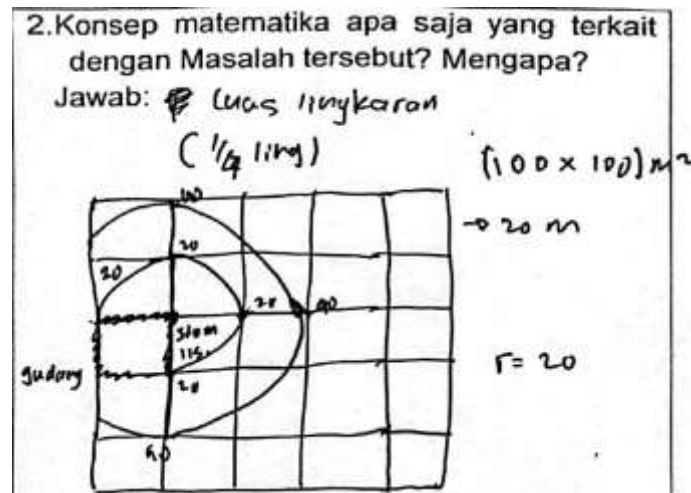 2.Konsep matematika apa saja yang terkait
dengan Masalah tersebut? Mengapa?
Jawab: Luas lingkaran
(1/4 ling)
(100 x 100) m²
→ 20 m
40
20
20
20
40
r = 20
gudang
20